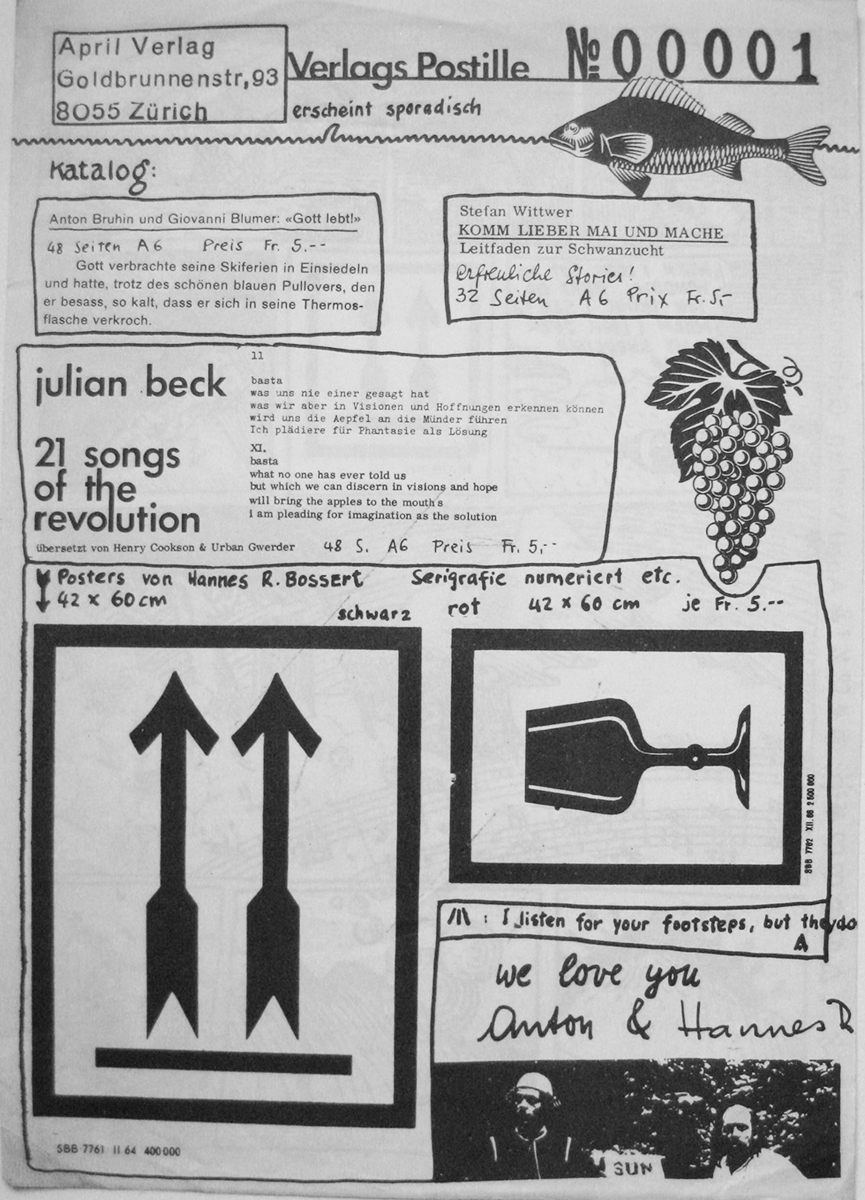 April Verlag
Goldbrunnenstr,93
8055 Zürich
Verlags Postille
№ 00001
erscheint sporadisch
Katalog:
Anton Bruhin und Giovanni Blumer: «Gott lebt!»
48 Seiten A6 Preis Fr. 5.--
Gott verbrachte seine Skiferien in Einsiedeln
und hatte, trotz des schönen blauen Pullovers, den
er besass, so kalt, dass er sich in seine Thermos-
flasche verkroch.
Stefan Wittwer
KOMM LIEBER MAI UND MACHE
Leitfaden zur Schwanzucht
erfreuliche Stories!
32 Seiten A6 Prix Fr. 5.-
julian beck
21 songs
of the
revolution
11
basta
was uns nie einer gesagt hat
was wir aber in Visionen und Hoffnungen erkennen können
wird uns die Aepfel an die Münder führen
Ich plädiere für Phantasie als Lösung
XI.
basta
what no one has ever told us
but which we can discern in visions and hope
will bring the apples to the mouth's
i am pleading for imagination as the solution
übersetzt von Henry Cookson & Urban Gwerder 48 S. A6 Preis Fr. 5,--
Posters von Hannes R. Bossert Serigrafie numeriert etc.
42 x 60 cm schwarz rot 42 x 60 cm je Fr. 5.--
SBB 7762 XII. 66 2 500 000
SBB 7761 II 64 400 000
: I listen for your footsteps, but they do
we love you
Anton & Hannes R
SUN